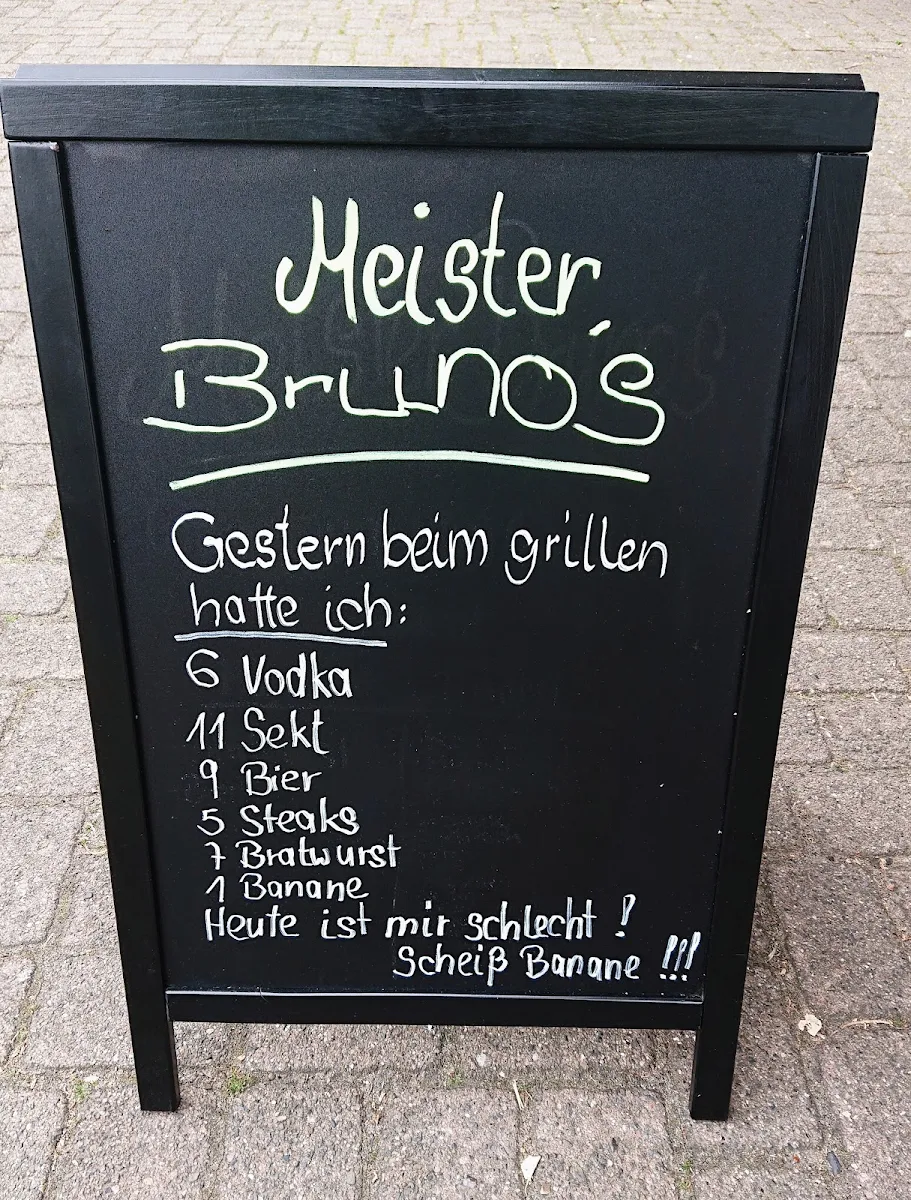 Meister
Bruno's
Gestern beim grillen
hatte ich:
6 Vodka
11 Sekt
9 Bier
5 Steaks
7 Bratwurst
1 Banane
Heute ist mir schlecht !
Scheiß Banane !!!